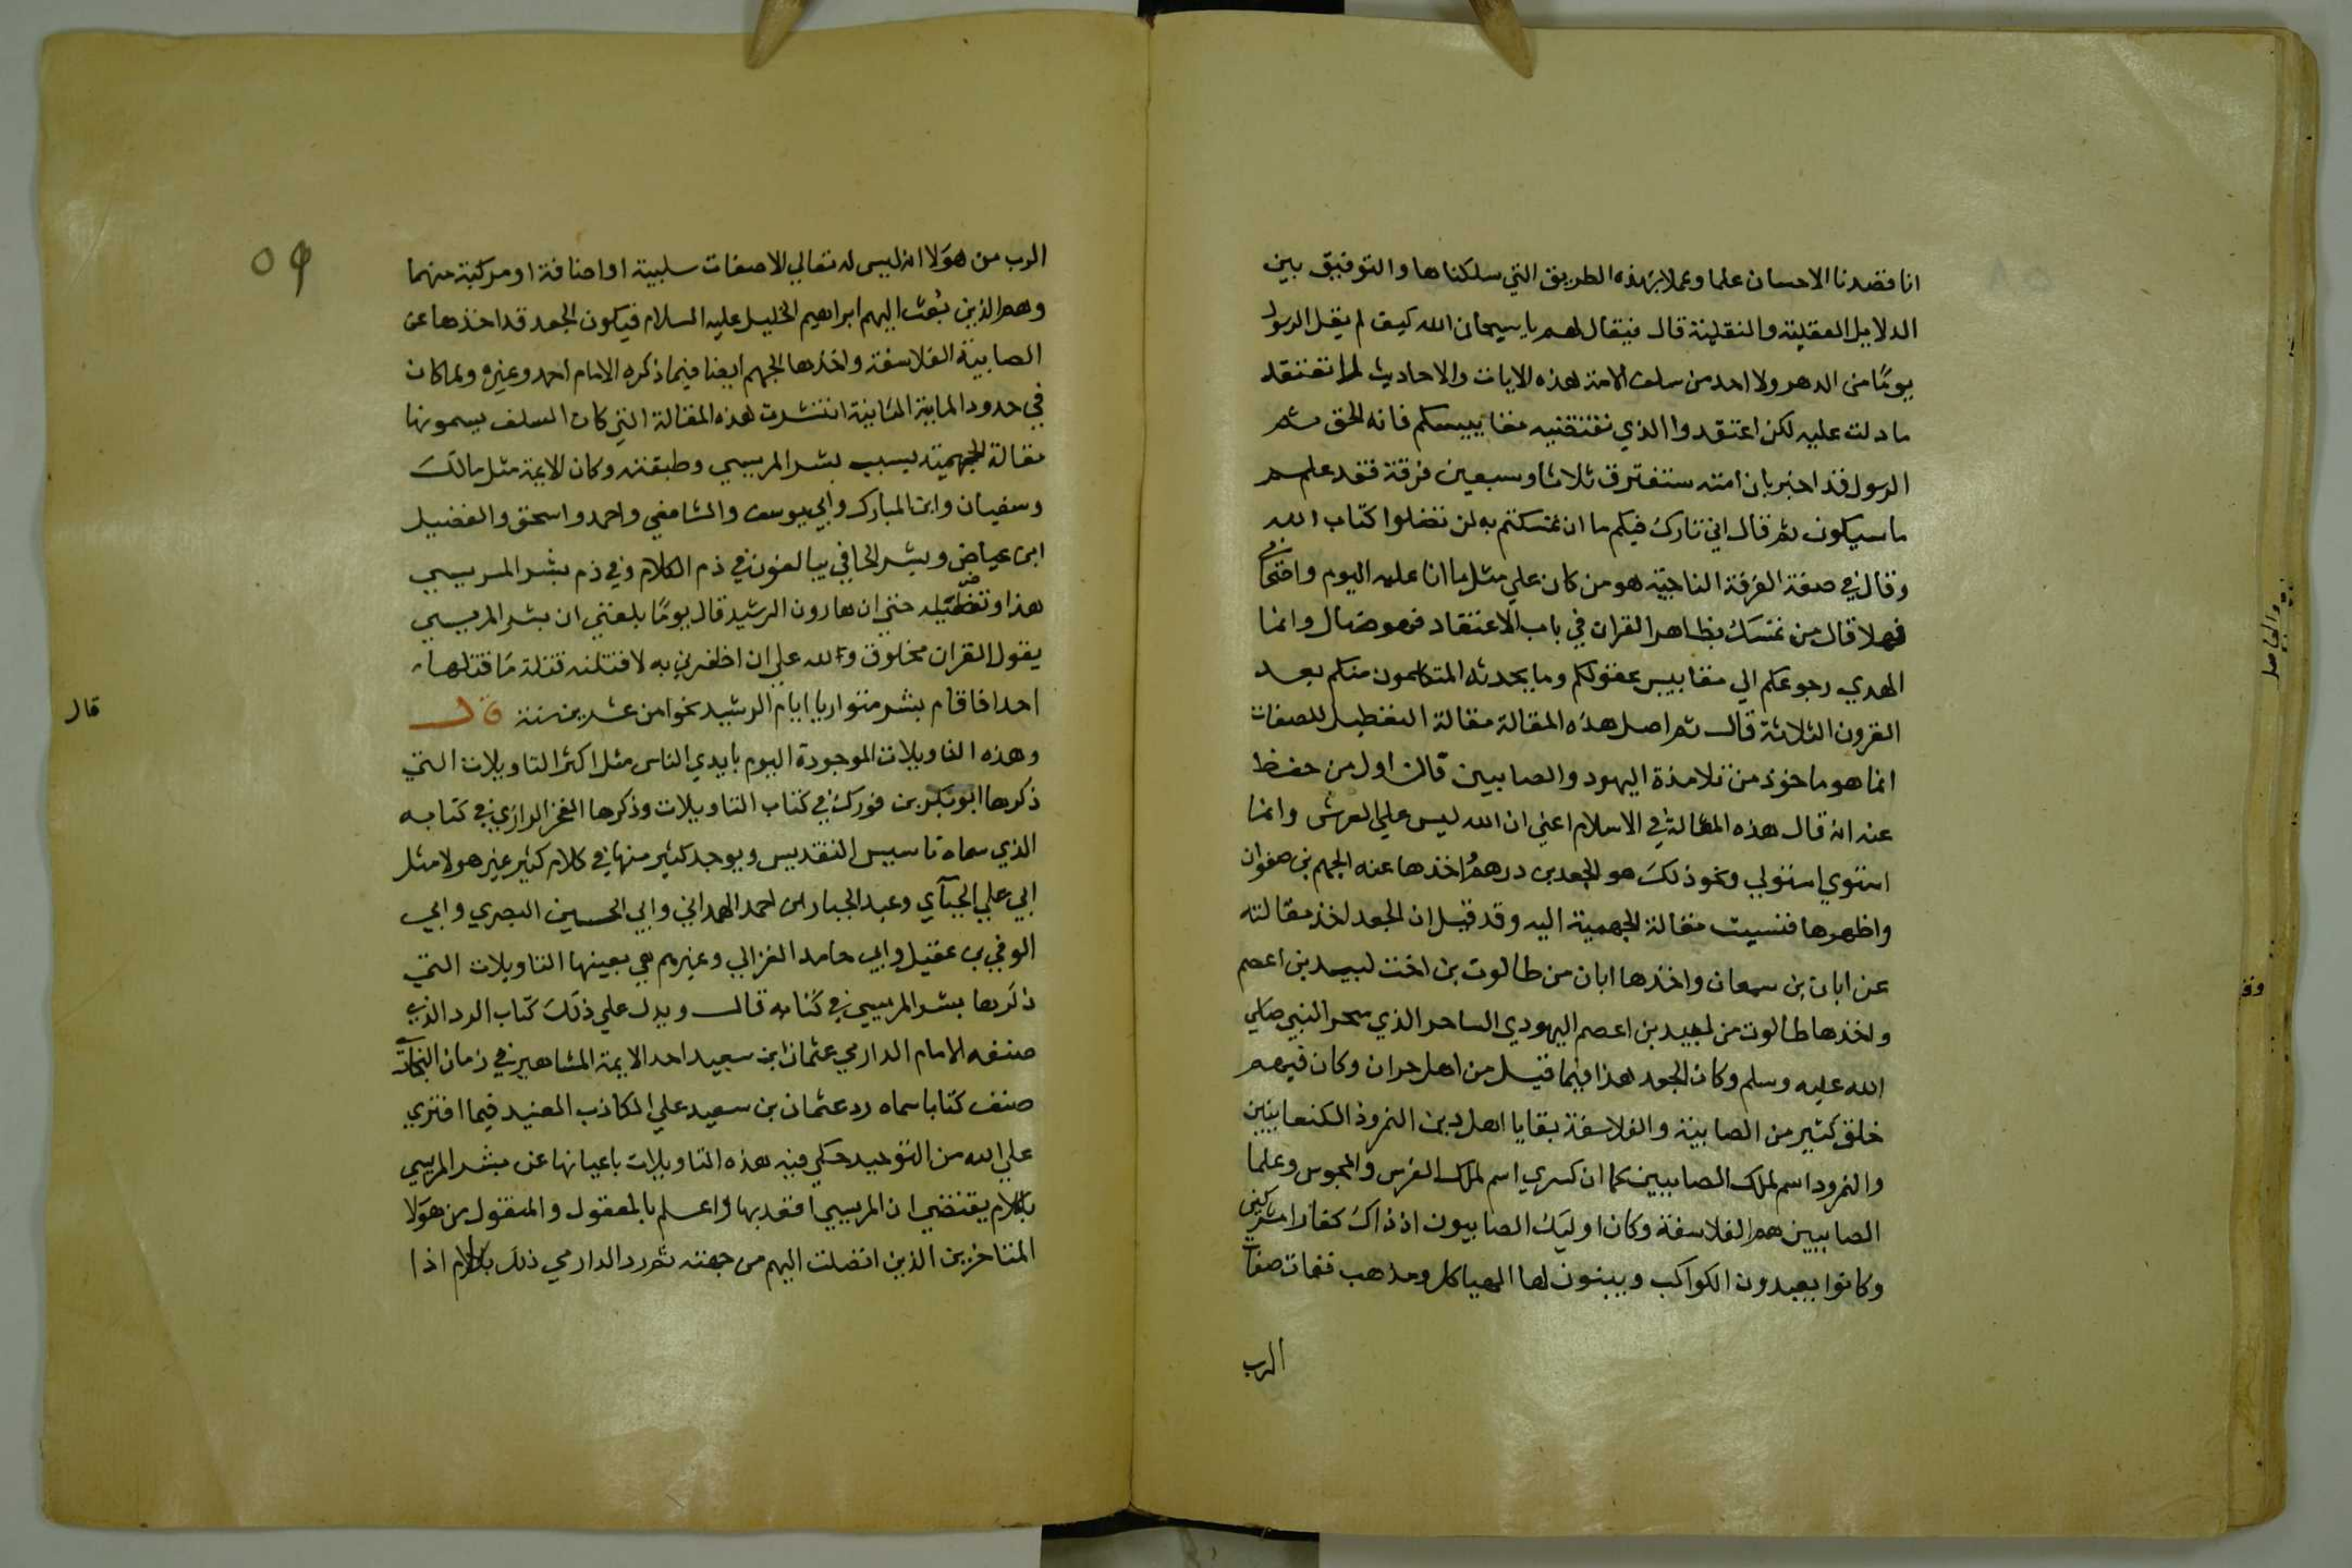 انا قصدنا الاحسان علما وعملا بهذه الطريق التي سلكناها والتوفيق بين
الدلايل العقلية والنقلية قال فيقال لهم يا سبحان الله كيف لم يقل الرسول
يومًا من الدهر ولا احد من سلف الامة هذه الايات والاحاديث لا تعتقد
ما دلت عليه لكن اعتقدوا الذي تقتضيه مقاييسكم فانه الحق ثم
الرسول قد اخبر بان امته ستفترق ثلاثا وسبعين فرقة فقد علم
ما سيكون ثم قال اني تارك فيكم ما ان تمسكتم به لن تضلوا كتاب الله
وقال في صفة الفرقة الناجية هو من كان علي مثل ما انا عليه اليوم واصحابي
فهلا قال من تمسك بظاهر القران في باب الاعتقاد فهو ضال وانما
الهدي رجوعكم الي مقاييس عقولكم وما يحدثه المتكلمون منكم بعد
القرون الثلاثة قال ثم اصل هذه المقالة مقالة التعطيل للصفات
انما هو ماخوذ من تلامذة اليهود والصابيين فان اول من حفظ
عنه انه قال هذه المقالة في الاسلام اعني ان الله ليس علي العرش وانما
استوي استولي ونحو ذلك هو الجعد بن درهم واخذها عنه الجهم بن صفوان
واظهرها فنسبت مقالة الجهمية اليه وقد قيل ان الجعد اخذ مقالته
عن ابان بن سمعان واخذها ابان من طالوت بن اخت لبيد بن اعصم
واخذها طالوت من لبيد بن اعصم اليهودي الساحر الذي سحر النبي صلي
الله عليه وسلم وكان الجعد هذا فيما قيل من اهل حران وكان فيهم
خلق كثير من الصابية والفلاسفة بقايا اهل دين النمروذ الكنعانيين
والنمرود اسم لملك الصابيين كما ان كسري اسم لملك الفرس والمجوس وعلما
الصابيين هم الفلاسفة وكان اوليك الصابيون اذ ذاك كفارا مشركين
وكانوا يعبدون الكواكب ويبنون لها الهياكل ومذهب نفات صفات
الرب
٥٩
الرب من هولا انه ليس له تعالي الا صفات سلبية او اضافة او مركبة منهما
وهم الذين بُعث اليهم ابراهيم الخليل عليه السلام فيكون الجعد قد اخذها عن
الصابية الفلاسفة واخذها الجهم ايضا فيما ذكره الامام احمد وغيره ولما كان
في حدود الماية الثانية انتشرت هذه المقالة التي كان السلف يسمونها
مقالة الجهمية بسبب بشر المريسي وطبقته وكان الايمة مثل مالك
وسفيان وابن المبارك وابي يوسف والشافعي واحمد واسحق والفضيل
ابن عياض وبشر الحافي يبالغون في ذم الكلام وفي ذم بشر المريسي
هذا وتضليله حتي ان هارون الرشيد قال يومًا بلغني ان بشر المريسي
يقول القران مخلوق ولله علي ان اظفرني به لاقتلنه قتلة ما قتلها
احدا فاقام بشر متواريا ايام الرشيد نحوا من عشرين سنة قال
قال
وهذه التاويلات الموجودة اليوم بايدي الناس مثل اكثر التاويلات التي
ذكرها ابو بكر بن فورك في كتاب التاويلات وذكرها الفخر الرازي في كتابه
الذي سماه تاسيس التقديس ويوجد كثير منها في كلام كثير غير هولا مثل
ابي علي الجبآي وعبد الجبار ابن احمد الهمداني وابي الحسين البصري وابي
الوفي بن عقيل وابي حامد الغزالي وغيرهم هي بعينها التاويلات التي
ذكرها بشر المريسي في كتابه قال ويدل علي ذلك كتاب الرد الذي
صنفه الامام الدارمي عثمان ابن سعيد احد الايمة المشاهير في زمان البخاري
صنف كتابا سماه رد عثمان بن سعيد علي الكاذب العنيد فيما افتري
علي الله من التوحيد حكي فيه هذه التاويلات باعيانها عن بشر المريسي
بكلام يقتضي ان المريسي اقعد بها واعلم بالمعقول والمنقول من هولا
المتاخرين الذين اتصلت اليهم من جهته ثم رد الدارمي ذلك بكلام اذا